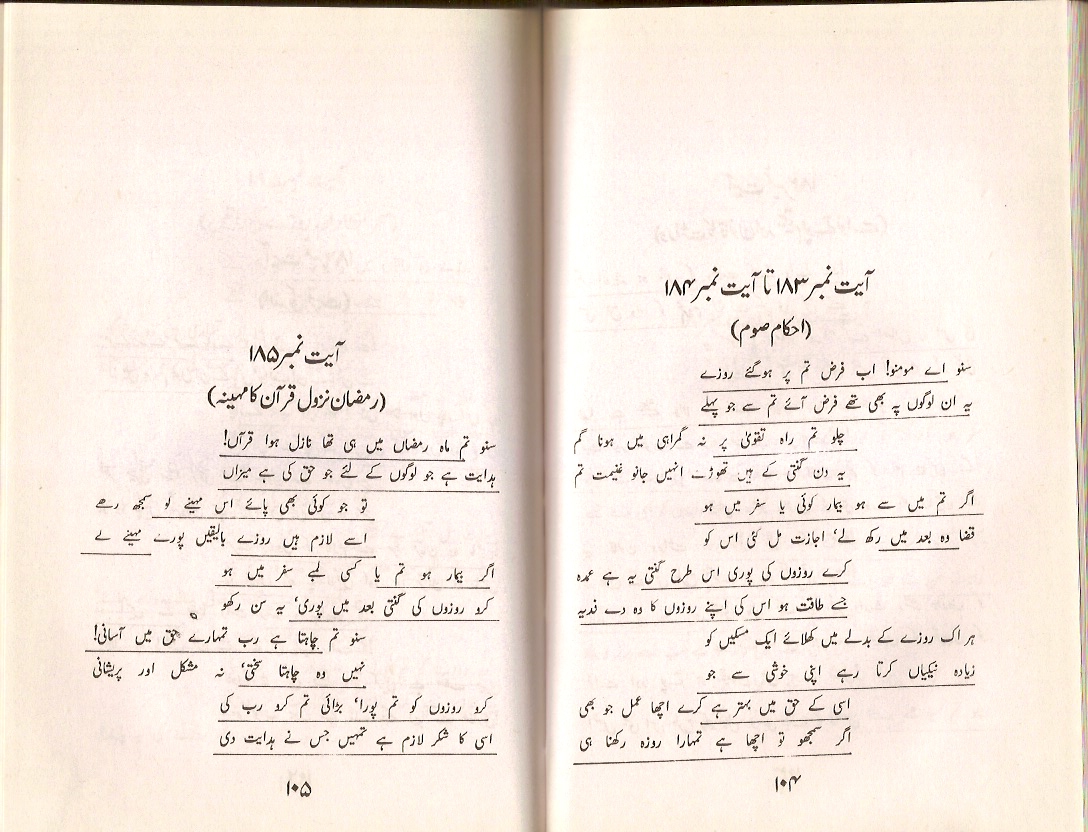 آیت نمبر ۱۸۳ تا آیت نمبر ۱۸۴
(احکام صوم)
سنو اے مومنو! اب فرض تم پر ہوگئے روزے
یہ ان لوگوں پہ بھی تھے فرض آئے تم سے جو پہلے
چلو تم راہ تقویٰ پر نہ گمراہی میں ہونا گم
یہ دن گنتی کے ہیں تھوڑے انہیں جانو غنیمت تم
اگر تم میں سے ہو بیمار کوئی یا سفر میں ہو
قضا وہ بعد میں رکھ لے، اجازت مل گئی اس کو
کرے روزوں کی پوری اس طرح گنتی یہ ہے عمدہ
جسے طاقت ہو اس کی اپنے روزوں کا وہ دے فدیہ
ہر اک روزے کے بدلے میں کھلائے ایک مسکیں کو
زیادہ نیکیاں کرتا رہے اپنی خوشی سے جو
اسی کے حق میں بہتر ہے کرے اچھا عمل جو بھی
اگر سمجھو تو اچھا ہے تمہارا روزہ رکھنا ہی
۱۰۴
آیت نمبر ۱۸۵
(رمضان نزول قرآن کا مہینہ)
سنو تم ماہ رمضاں میں ہی تھا نازل ہوا قرآں!
ہدایت ہے جو لوگوں کے لئے جو حق کی ہے میزاں
تو جو کوئی بھی پائے اس مہینے کو سمجھ رکھے
اسے لازم ہیں روزے بالیقیں پورے مہینے کے
اگر بیمار ہو تم یا کسی لمبے سفر میں ہو
کرو روزوں کی گنتی بعد میں پوری، یہ سن رکھو
سنو تم چاہتا ہے رب تمہارے حق میں آسانی!
نہیں وہ چاہتا سختی، نہ مشکل اور پریشانی
کرو روزوں کو تم پورا، بڑائی تم کرو رب کی
اسی کا شکر لازم ہے تمہیں جس نے ہدایت دی
۱۰۵